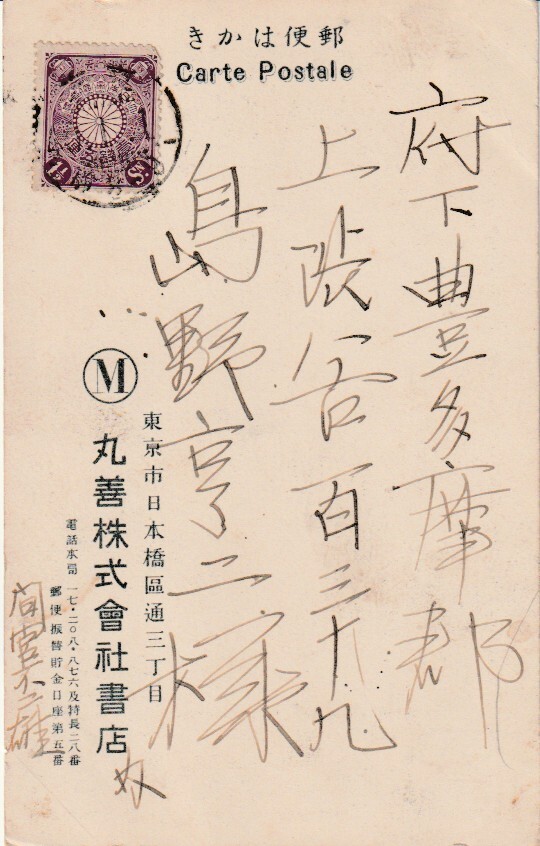 きかは便郵
Carte Postale
府下豊多摩郡
上渋谷百三十九
島野亨二様
東京市日本橋區通三丁目
M
丸善株式會社書店
電話本局 一七・二〇八・八七六及特長二八番
郵便振替貯金口座第五番